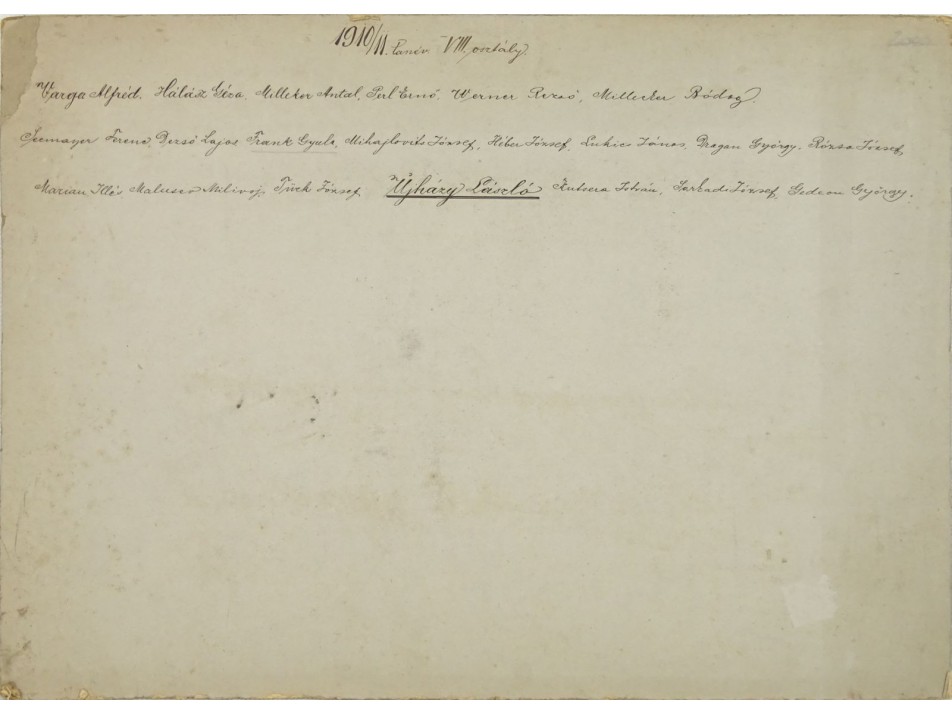 1910/11. tanév. VIII. osztály.
Varga Alfréd. Halász Géza, Milleker Antal, Perl Ernő, Werner Rezső, Milleker Bódog.
Ferenc, Dezső Lajos Frank Gyula, Mihajlovits József, Héber József, Lukics János, Dragan György. Rózsa József,
Marian Illés Milivoj. Türk József, Újházy László István, Sarkadi József, Gedeon György.